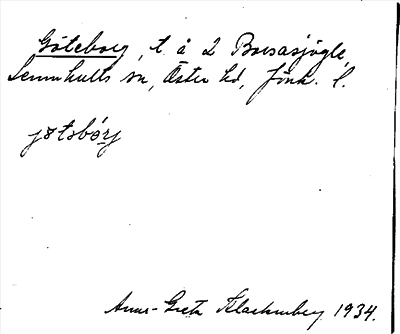 Göteborg, t. å 2 Boosasjögle,
Lemnhults sn, Östra hd, Jönk. l.
jøtsbórj
Anna-Greta Klackenberg 1934.